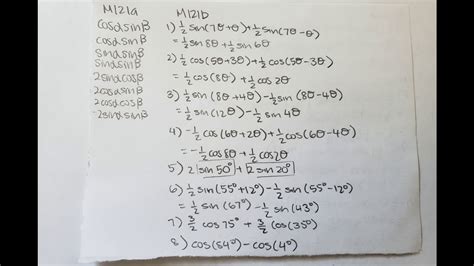 M121a
cosαsinβ
cosαsinβ
sinαsinβ
sinαsinβ
2sinαcosβ
2cosαsinβ
2cosαcosβ
-2sinαsinβ
M121b
1) ½ sin(7θ+θ)+½ sin(7θ-θ)
= ½ sin 8θ + ½ sin 6θ
2) ½ cos(5θ+3θ)+½ cos(5θ-3θ)
= ½ cos(8θ) + ½ cos2θ
3) ½ sin (8θ+4θ) - ½ sin (8θ-4θ)
= ½ sin (12θ) - ½ sin 4θ
4) -½ cos(6θ+2θ)+½ cos(6θ-4θ)
= -½ cos8θ + ½ cos2θ
5) 2 sin 50° + 2 sin 20°
6) ½ sin(55°+12°) - ½ sin (55°-12°)
= ½ sin (67°) - ½ sin (43°)
7) 3/2 cos 75° + 3/2 cos(35°)
8) cos(54°) - cos(4°)